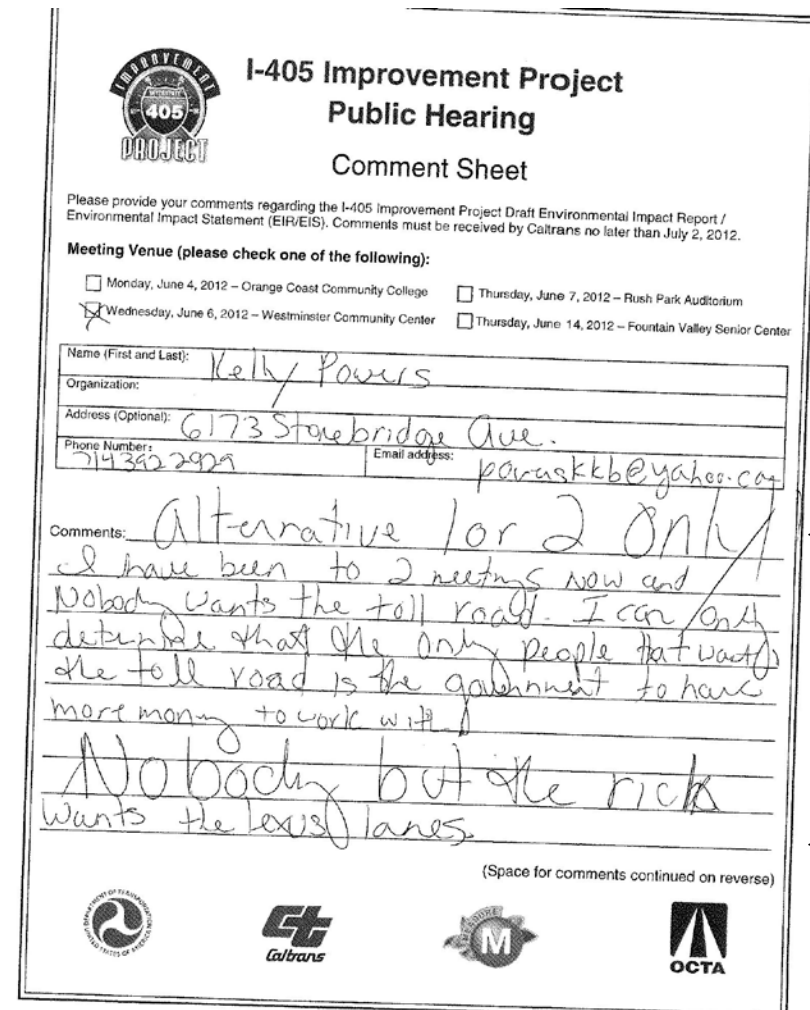 IMPROVEMENT
INTERSTATE
405
PROJECT
I-405 Improvement Project
Public Hearing
Comment Sheet
Please provide your comments regarding the I-405 Improvement Project Draft Environmental Impact Report /
Environmental Impact Statement (EIR/EIS). Comments must be received by Caltrans no later than July 2, 2012.
Meeting Venue (please check one of the following):
Monday, June 4, 2012 – Orange Coast Community College
Thursday, June 7, 2012 – Rush Park Auditorium
Wednesday, June 6, 2012 – Westminster Community Center
Thursday, June 14, 2012 – Fountain Valley Senior Center
Name (First and Last): Kelly Powers
Organization:
Address (Optional): 6173 Stonebridge Ave.
Phone Number: 7143922929
Email address: powerskkb@yahoo.com
Comments: Alternative 1 or 2 Only
I have been to 2 meetings now and
Nobody wants the toll road. I can only
determine that the only people that want
the toll road is the government to have
more money to work with
Nobody but the rich
wants the lexus lanes.
(Space for comments continued on reverse)
DEPARTMENT OF TRANSPORTATION
UNITED STATES OF AMERICA
Caltrans
MEASURE
M
OCTA